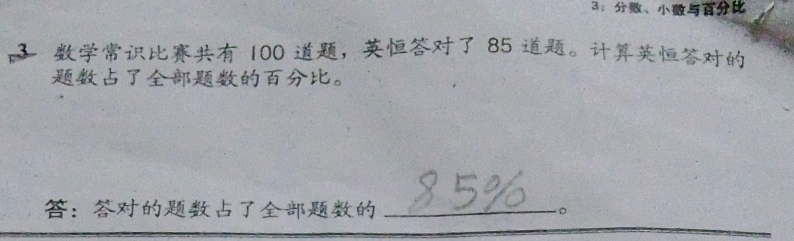 3：分数、小数与百分比
3 数学常识比赛共有 100 道题，英恒答对了 85 道题。计算英恒答对的
题数占了全部题数的百分比。
答：答对的题数占了全部题数的 85% 。